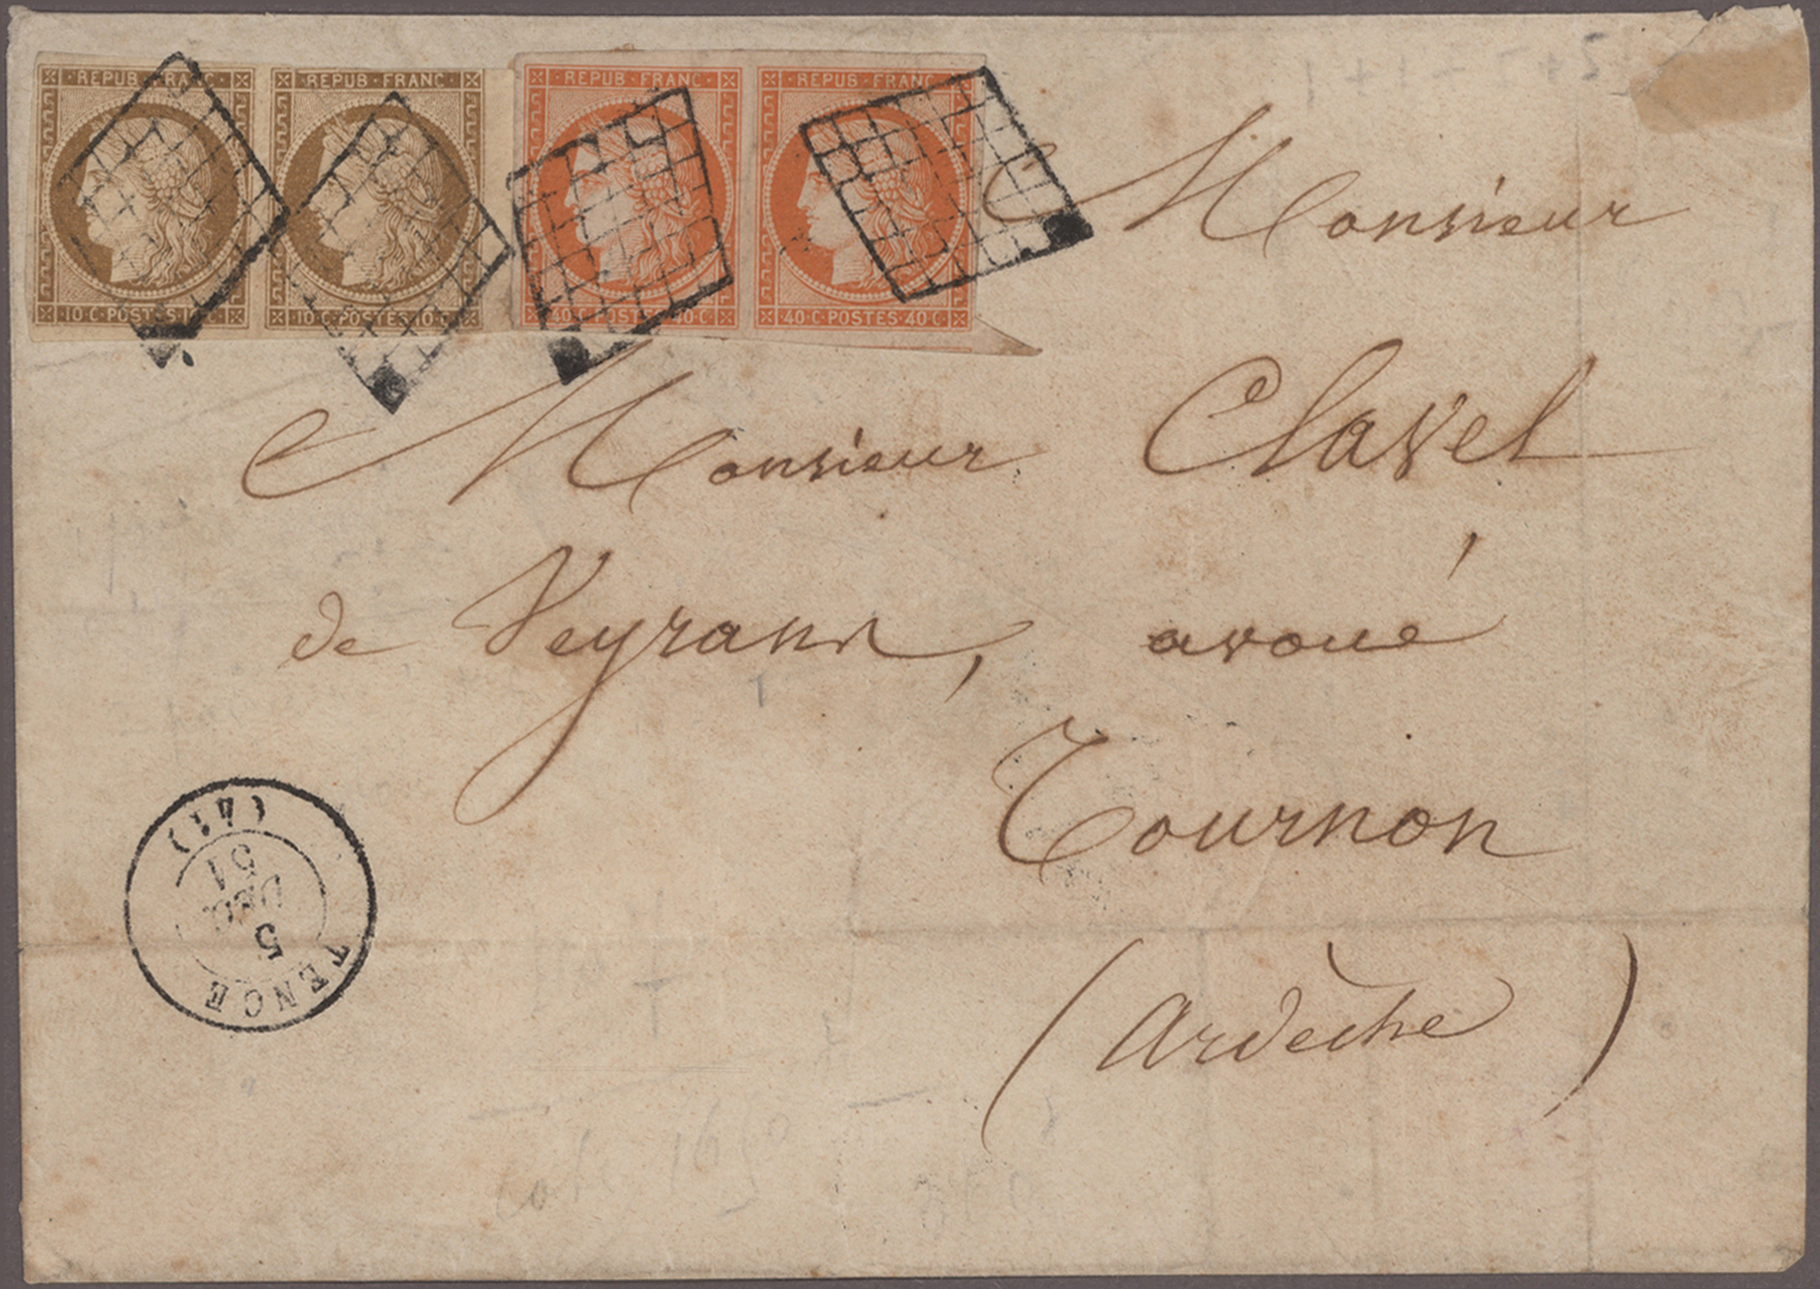 REPUB·FRANC· REPUB·FRANC· REPUB·FRANC· REPUB·FRANC·
10·C·POSTES·10·C· 10·C·POSTES·10·C· 40·C·POSTES·40·C· 40·C·POSTES·40·C·
Monsieur
Monsieur Clavel
de Veyrand, avoué
Tournon
(Ardèche)
TENCE
5
DEC
51